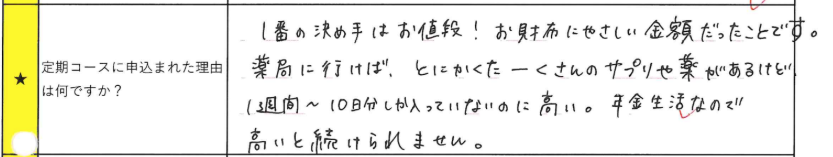 ★
定期コースに申込まれた理由
は何ですか？
1番の決め手はお値段！お財布にやさしい金額だったことです。
薬局に行けば、とにかくた一くさんのサプリや薬があるけど、
1週間～10日分しか入っていないのに高い。年金生活なので
高いと続けられません。